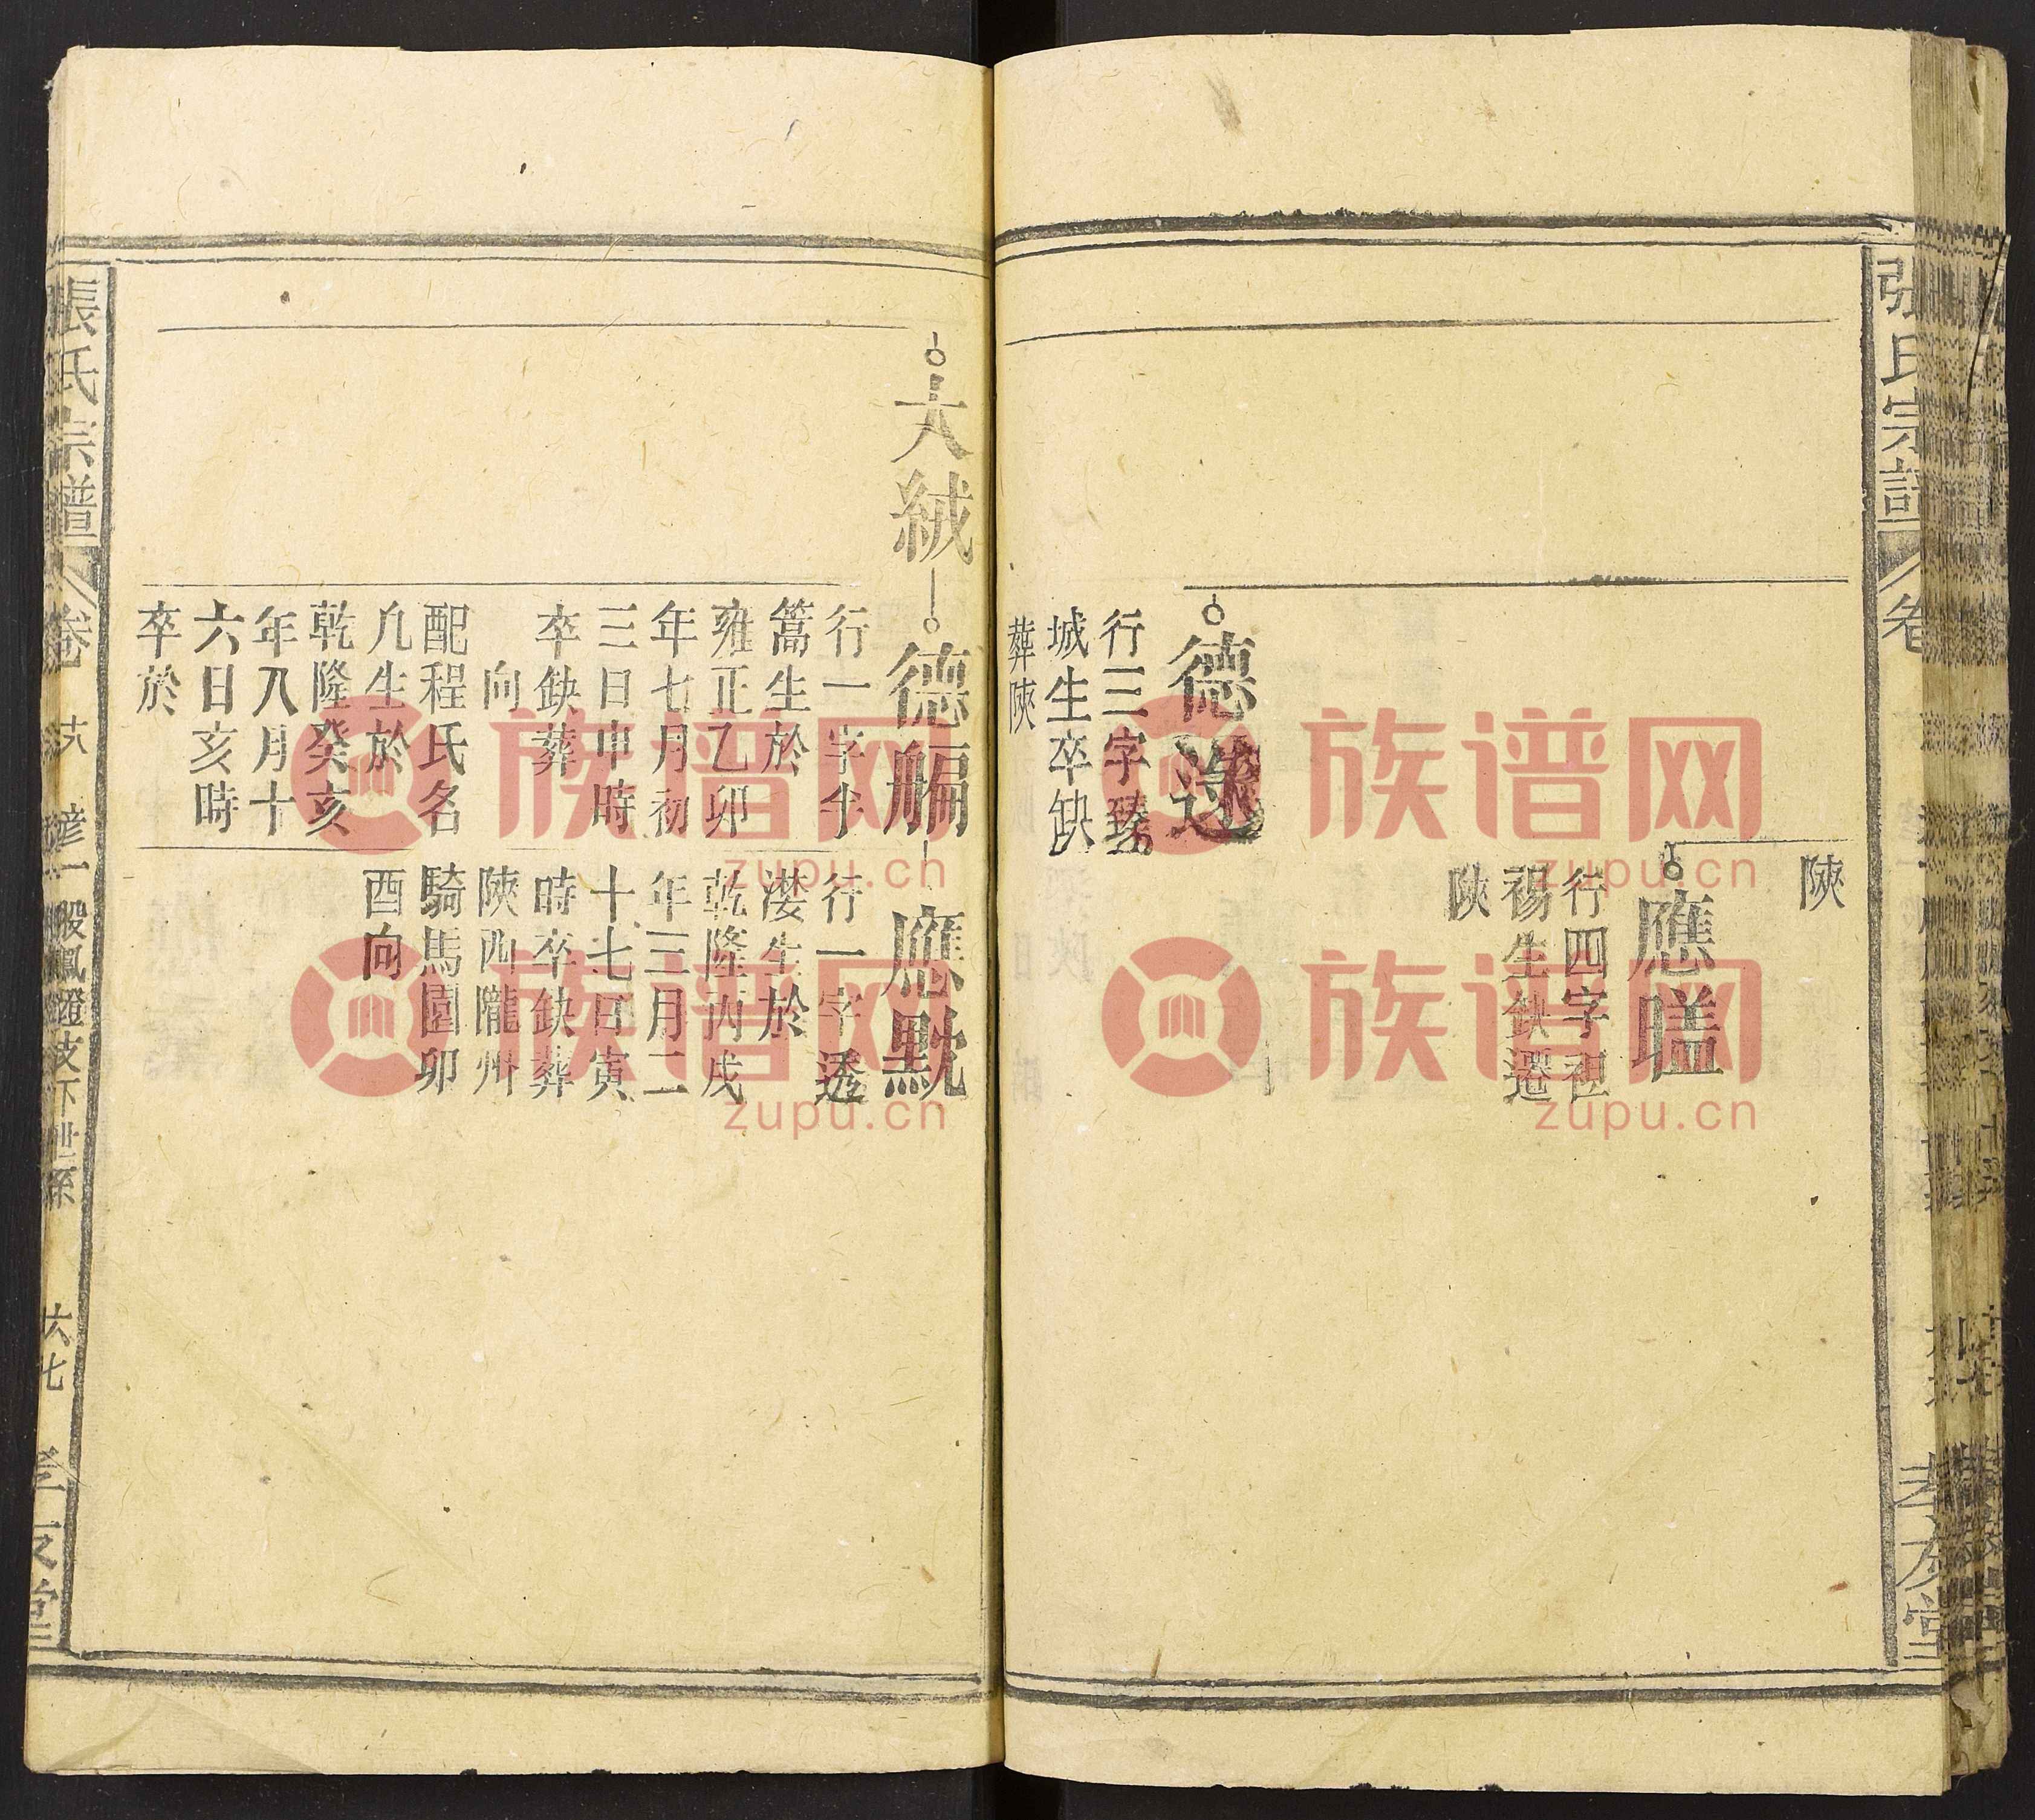 張氏宗譜
卷
孝友堂
陝
應㬓
行四字
裼生缺遷
陝
德
行三字臻
城生卒缺
葬陝
大絨
德艑
行一字
篙生於
雍正乙卯
年七月初
三日申時
卒缺葬
向
配程氏名
九生於
乾隆癸亥
年八月十
六日亥時
卒於
應黕
行一字透
漤生於
乾隆丙戌
年三月二
十七日寅
時卒缺葬
陝西隴州
騎馬園卯
酉向
張氏宗譜
卷
鳳
下世系
六七
孝友堂
族谱网
zupu.cn
族谱网
zupu.cn
族谱网
zupu.cn
族谱网
zupu.cn